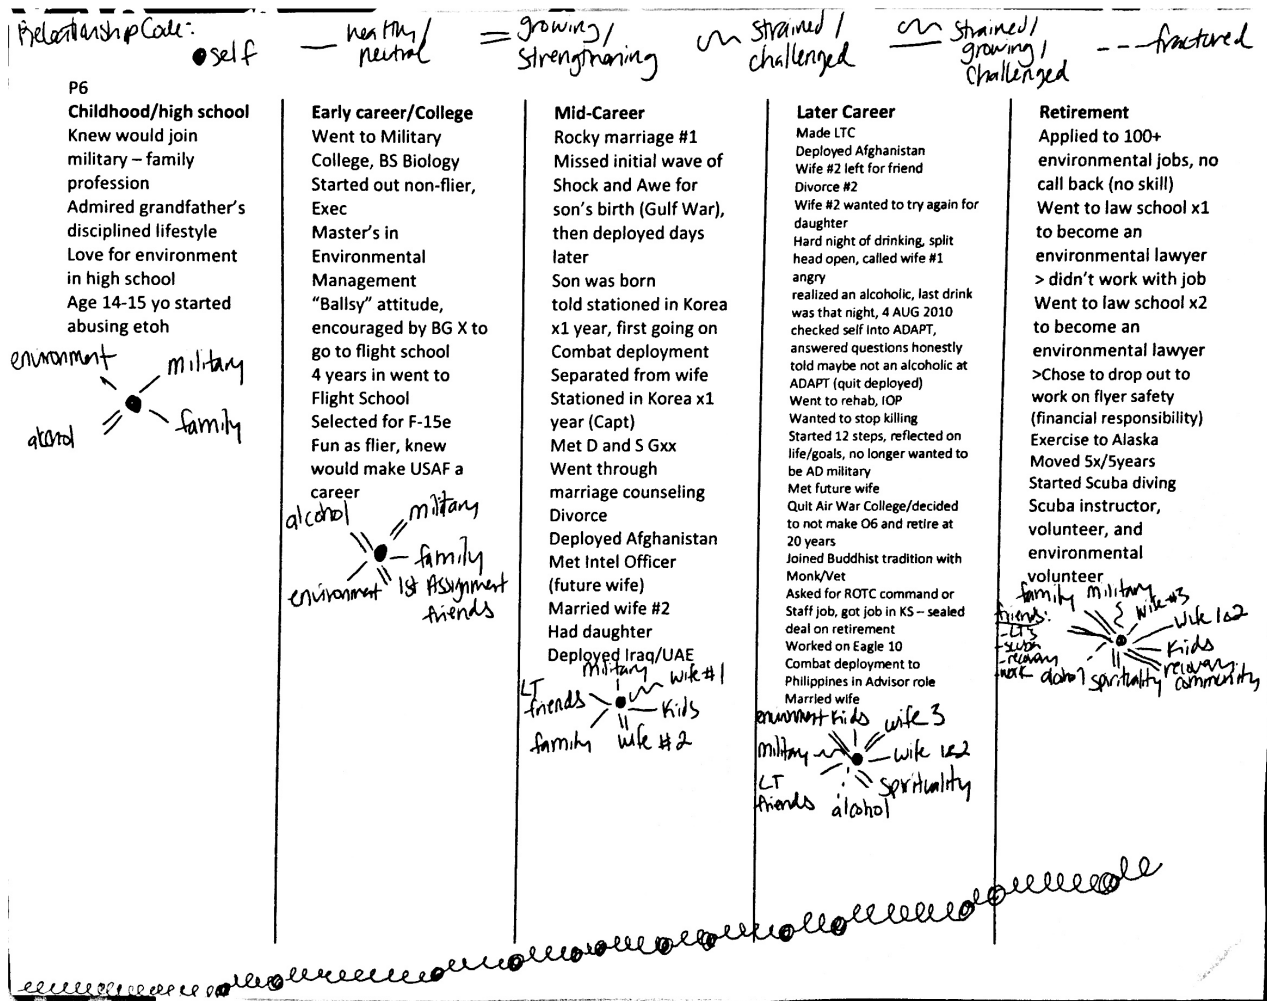 Relationship Code:
self
healthy/
neutral
growing/
strengthening
strained/
challenged
strained/
growing/
challenged
fractured
P6
Childhood/high school
Knew would join
military – family
profession
Admired grandfather's
disciplined lifestyle
Love for environment
in high school
Age 14-15 yo started
abusing etoh
environment
military
alcohol
family
Early career/College
Went to Military
College, BS Biology
Started out non-flier,
Exec
Master's in
Environmental
Management
"Ballsy" attitude,
encouraged by BG X to
go to flight school
4 years in went to
Flight School
Selected for F-15e
Fun as flier, knew
would make USAF a
career
alcohol
military
family
environment
1st Assignment
friends
Mid-Career
Rocky marriage #1
Missed initial wave of
Shock and Awe for
son's birth (Gulf War),
then deployed days
later
Son was born
told stationed in Korea
x1 year, first going on
Combat deployment
Separated from wife
Stationed in Korea x1
year (Capt)
Met D and S Gxx
Went through
marriage counseling
Divorce
Deployed Afghanistan
Met Intel Officer
(future wife)
Married wife #2
Had daughter
Deployed Iraq/UAE
military
wife #1
LT
friends
Kids
family
wife #2
Later Career
Made LTC
Deployed Afghanistan
Wife #2 left for friend
Divorce #2
Wife #2 wanted to try again for
daughter
Hard night of drinking, split
head open, called wife #1
angry
realized an alcoholic, last drink
was that night, 4 AUG 2010
checked self into ADAPT,
answered questions honestly
told maybe not an alcoholic at
ADAPT (quit deployed)
Went to rehab, IOP
Wanted to stop killing
Started 12 steps, reflected on
life/goals, no longer wanted to
be AD military
Met future wife
Quit Air War College/decided
to not make O6 and retire at
20 years
Joined Buddhist tradition with
Monk/Vet
Asked for ROTC command or
Staff job, got job in KS – sealed
deal on retirement
Worked on Eagle 10
Combat deployment to
Philippines in Advisor role
Married wife
environment
Kids
wife 3
military
wife 1&2
LT
friends
spirituality
alcohol
Retirement
Applied to 100+
environmental jobs, no
call back (no skill)
Went to law school x1
to become an
environmental lawyer
> didn't work with job
Went to law school x2
to become an
environmental lawyer
>Chose to drop out to
work on flyer safety
(financial responsibility)
Exercise to Alaska
Moved 5x/5years
Started Scuba diving
Scuba instructor,
volunteer, and
environmental
volunteer
family
military
wife #3
friends:
-LT's
-scuba
-recovery
-work
wife 1&2
Kids
recovery
community
alcohol
spirituality